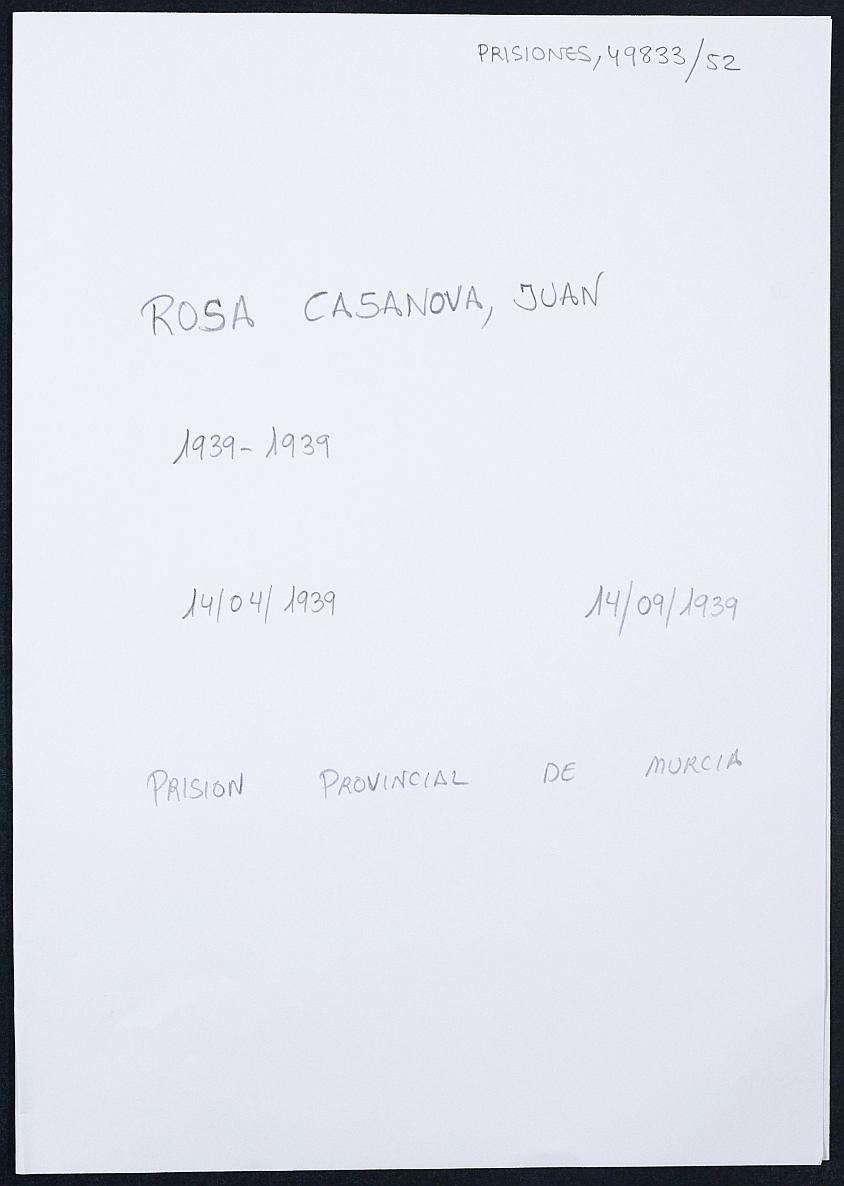 PRISIONES, 49833/52
ROSA CASANOVA, JUAN
1939-1939
14/04/1939 14/09/1939
PRISION PROVINCIAL DE MURCIA